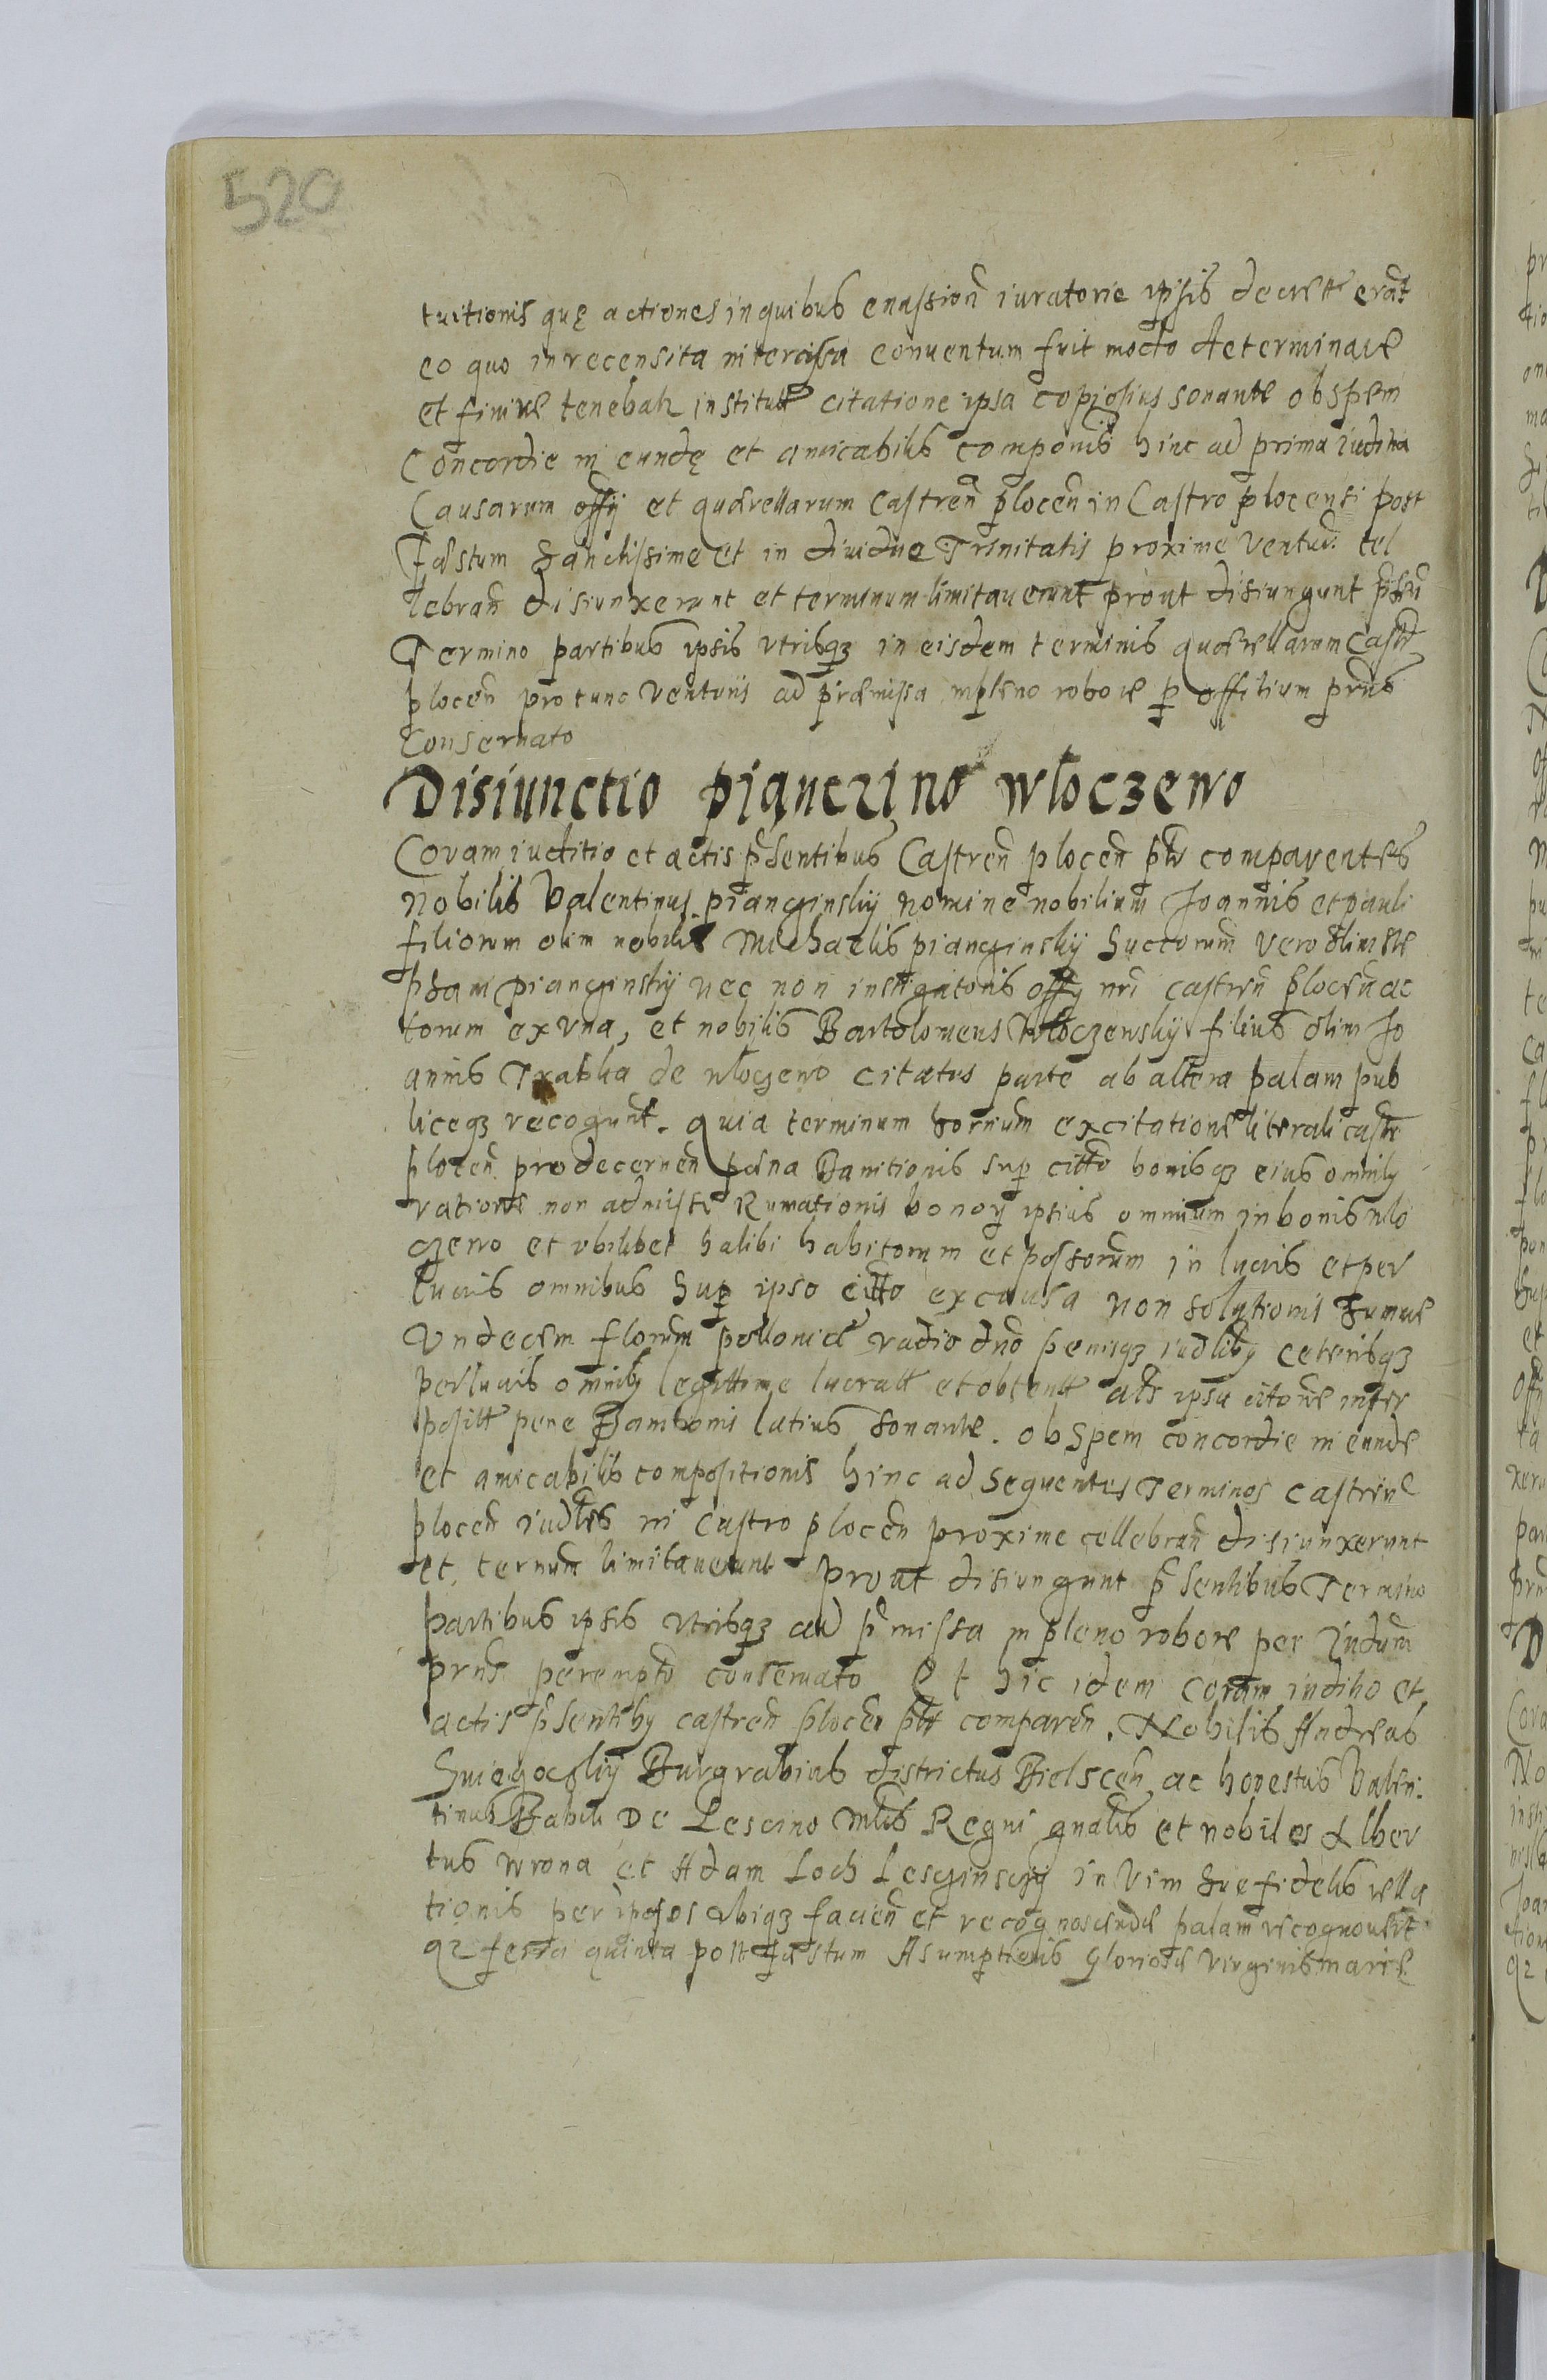 520
tuitionis quę actiones in quibus evassion iuratorie ipsis decrett erāt
eo quo in recensita intercissa conventum fuit modo determinare
et finire tenebatr institutt citatione ipsa copiosius sonante ob spem
Concordie in eundę et amicabilis componis hinc ad prima iuditia
Causarum offij et quærellarum Castren plocen in Castro plocensi post
Fæstum Sanctissime et individue Trinitatis proxime ventur cel
lebran disiunxerunt et terminum limitaverunt prout disiungunt
Termino partibus ipsis utrisqz in eisdem terminis quærellarum Castr
plocen pro tunc venturis ad præmissa in pleno robore p offitium prns
Conservato
Disiunctio piąnczino włoczewo
Coram iuditio et actis psentibus Castren plocen ptr comparentes
Nobilis Valentinus pianczinskij nomine nobilium Joannis et pauli
filiorum olim nobilis Michaelis pianczinskij Succorum vero olim Ste
phani pianczinskij nec non instigatoris offij nri castren plocen ac
torum ex una, et nobilis Bartolomeus Włoczewskij filius olim Jo
annis Trabka de włoczewo citatus parte ab altera palam pub
liceqz recogunt. quia terminum hornum ex citatione literali castr
plocen pro decernen pæna Banitionis sup citto bonisqz eius omniby
ratione non admisse Rumationis bonor ipsius omnium in bonis wło
czewo et ubilibet halibi habitorum et possorum in lucris et per
lucris omnibus Sup ipso citto ex causa non solutionis summe
Undecem florum pollonical vadio dno penisqz iudliby ceterisqz
perlucris omniby legittime lucratt et obtentt als ipsa citone inter
positt pene Banitionis latius sonante. ob Spem concordie in eunde
et amicabilis compositionis hinc ad Sequentes Terminos castren
plocen iudles in Castro plocen proxime cellebran disiunxerunt
et ternum limitaverunt prout disiungunt psentibus Termino
partibus ipsis utrisqz ad pmissa in pleno robore per Iudum
prns perempto conservato Et hic idem coram iuditio et
actis psentiby castren plocen ptr comparen. Nobilis Andreas
Swiegoczkij Burgrabius districtus Bielscen ac honestus Valen.
tinus Babik De Lescino mlis Regni gnalis et nobiles Alber
tus Wrona et Adam Loch Lesczinscy in Vim sue fidelis rella
tionis per ipsos ubiqz facien et recognoscende palam recognoverut
qz feria quinta post fæstum Asumptionis Gloriose virginis marie